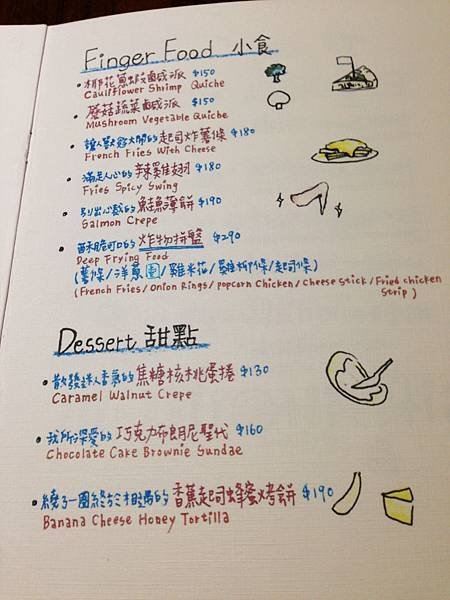 Finger Food 小食
椰花魚蝦鹹派 $150
Cauliflower Shrimp Quiche
蘑菇蔬菜鹹派 $150
Mushroom Vegetable Quiche
讓人歡舒大開的起司炸薯條 $180
French Fries With Cheese
滿足人心的辣雞翅 $180
Fries Spicy Swing
引出心戲的鮭魚薄餅 $190
Salmon Crepe
酥脆可口的炸物拼盤 $290
Deep Frying Food
(薯條/洋蔥圈/雞米花/雞柳條/起司條)
(French Fries/Onion Rings/popcorn Chicken/Cheese Stick/Fried chicken
Strip)
Dessert 甜點
散發迷人香氣的焦糖核桃蛋捲 $130
Caramel Walnut Crepe
我所深愛的巧克力布朗尼聖代 $160
Chocolate Cake Brownie Sundae
繞了一圈終於相遇的香蕉起司蜂蜜烤餅 $190
Banana Cheese Honey Tortilla